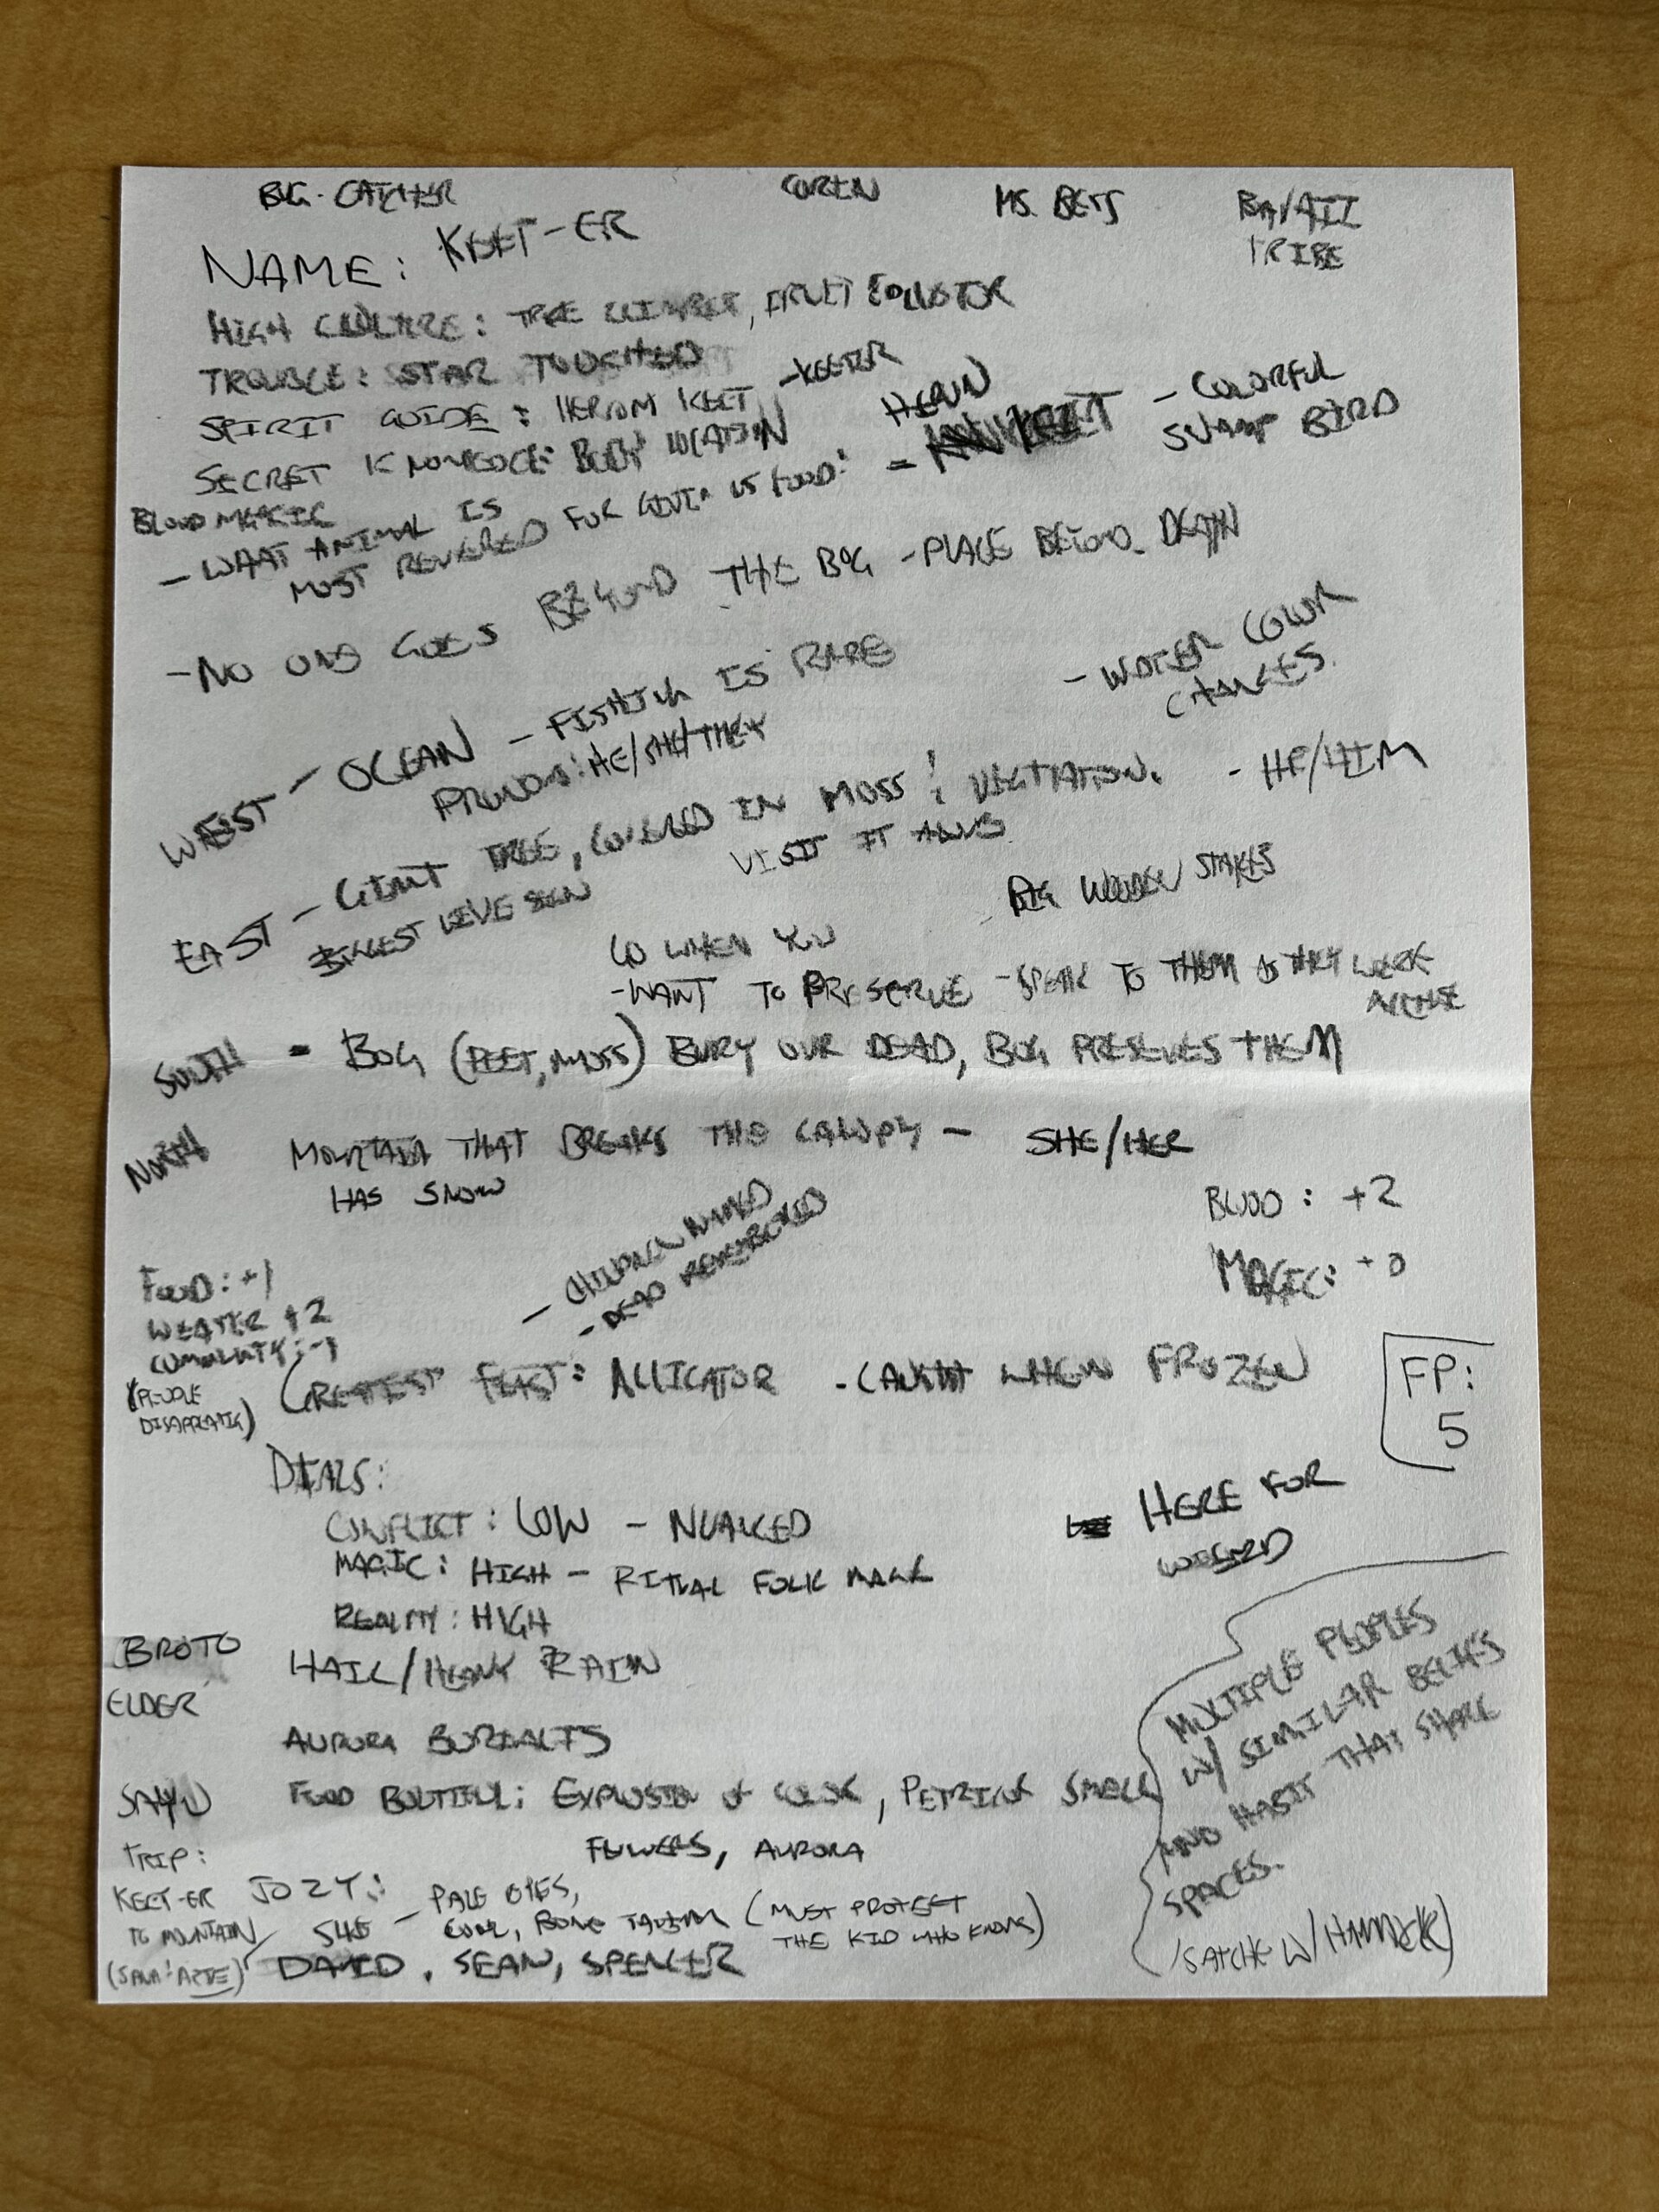 BUG-CATCHER
CORIN
MS. BETS
TRIBE
NAME: KEET-ER
HIGH CULTURE: TREE CLIMBER, FRUIT COLLECTOR
TROUBLE: STAR TOUCHED
SPIRIT GUIDE: HERIOM KEET - KEETER
SECRET KNOWLEDGE: BODY LOCATION
BLOOD MAGIC
- WHAT ANIMAL IS
MOST REVERED FOR GIVIN US FOOD: =
HERUN
- COLORFUL
SWAMP BIRD
- NO ONE GOES BEYOND THE BOG - PLACE BEYOND DEATH
WEST - OCEAN - FISHING IS RARE
- WATER COLOR
CHANGES.
PRONOUN: HE/SHE/THEY
EAST - GIANT TREE, COVERED IN MOSS & VEGITATION. - HE/HIM
BIGGEST
VISIT IT
BIG WOODEN STAKES
GO WHEN YOU
- WANT TO PRESERVE - SPEAK TO THEM AS THEY WERE
SOUTH = BOG (PEET, MOSS) BURY OUR DEAD, BOG PRESERVES THEM
NORTH MOUNTAIN THAT BREAKS THE CANOPY - SHE/HER
HAS SNOW
BLOOD: +2
MAGIC: +0
- CHILDREN NAMED
- DEAD REMEMBERED
FOOD: +1
WEATER +2
COMMUNITY: -1
(PEOPLE
DISAPPEARING)
GRETEST FEAST: ALLIGATOR - CAUGHT WHEN FROZEN
FP:
5
DIALS:
CONFLICT: LOW - NUANCED
MAGIC: HIGH - RITUAL FOLK MAGIC
REALITY: HIGH
HERE FOR
WEIRD
BROTO
HAIL/HEAVY RAIN
ELDER
AURORA BORIALIS
FOOD BOUTIFUL: EXPLOSION OF COLOR, PETRICOR SMELL
FLOWERS, AURORA
TRIP:
KEET-ER
TO MOUNTAIN
JOZY:
SHE - PALE EYES,
COOL, BONE TALISMAN (MUST PROTECT
THE KID WHO KNOWS)
DAVID, SEAN, SPENCER
MULTIPLE PEOPLES
W/ SIMILAR BELIEFS
AND HABIT THAT SHARE
SPACES.